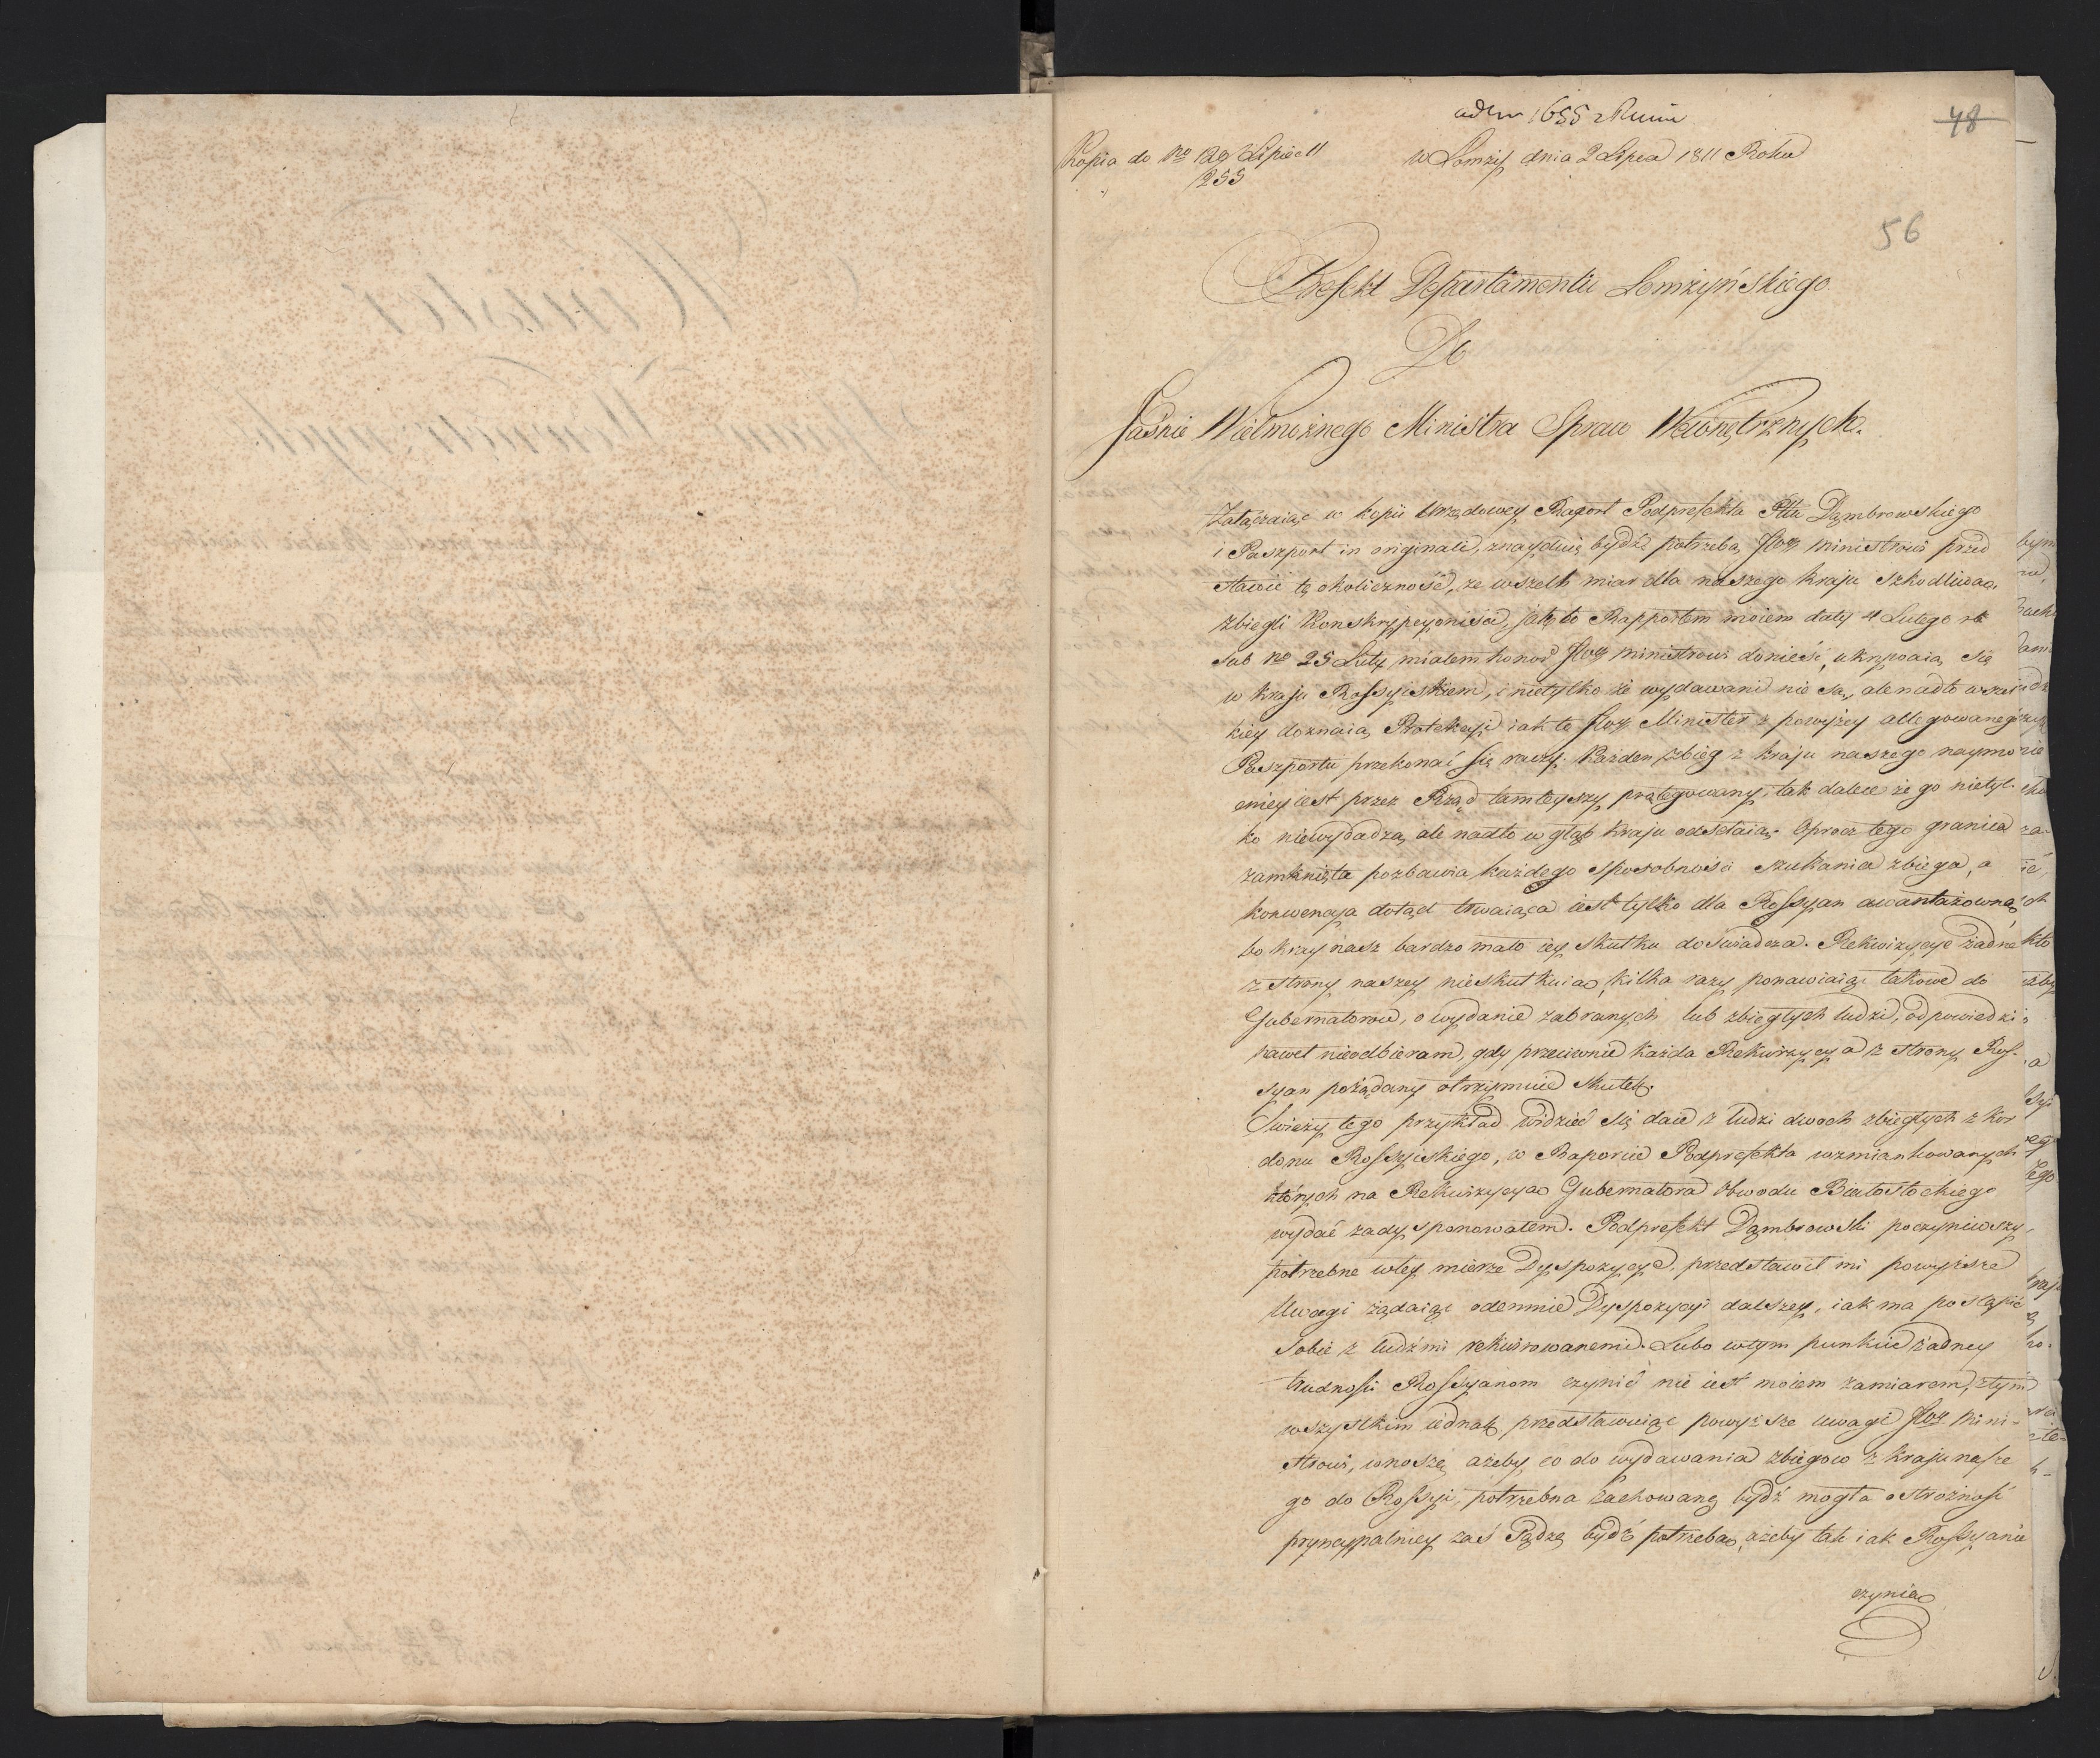 1655
48
Kopia do No 129 Lipiec 11
255
w Łomży dnia 2 Lipca 1811 Roku
56
Prefekt Departamentu Łomżyńskiego
Do
Jaśnie Wielmożnego Ministra Spraw Wewnętrznych.
Załączaiąc w kopii Urzędowey Raport Podprefekta Pttu Dąmbrowskiego
i Paszport in originali, znayduię bydź potrzebą JWgo Ministrowi przed
stawić tę okoliczność, ze wszech miar dla naszego kraju szkodliwą,
zbiegli Konskrypcyoniści, jak to Rapportem moiem daty 4 Lutego rb
sub No 25 Luty miałem honor JWgo Ministrowi donieść, ukrywaią się
w kraju Rossyiskiem, i nietylko że wydawani nie są, ale nadto wszel
kiey doznaią Protekcyi iak to JWgo Minister z powyżey allegowanego
Paszportu przekonać się raczy. Każden zbieg z kraju naszego naymo
cniey iest przez Rząd tamteyszy protegowany, tak dalece że go nietyl-
ko niewydadzą, ale nadto w głąb kraju odsełaią. Oprocz tego granica
zamknięta pozbawia każdego sposobności szukania zbiega, a
konwencya dotąd trwaiąca iest tylko dla Rossyan awantażowną,
bo kray nasz bardzo mało iey skutku doswiadcza. Rekwizycye żadne
z strony naszey nieskutkuią, kilka razy ponawiaiąc takowe do
Gubernatorow, o wydanie zabranych lub zbiegłych ludzi, odpowiedzi
nawet nieodbieram, gdy przeciwnie każda Rekwizycya z strony Ros-
syan pożądany otrzymuie skutek.
Swieży tego przykład widzieć się daie z ludzi dwoch zbiegłych z kor
donu Rossyiskiego, w Raporcie Podprefekta wzmiankowanych
których na Rekwizycyą Gubernatora Obwodu Białostockiego
wydać zadysponowałem. Podprefekt Dąmbrowski poczyniwszy
potrzebne wtey mierze Dyspozycye, przedstawił mi powyższe
Uwagi żądaiąc odemnie Dyspozycyi dalszey, iak ma postąpić
Sobie z ludźmi rekwirowanemi. Lubo wtym punkcie żadney
trudności Rossyanom czynić nie iest moiem zamiarem, ztym
wszystkim iednak przedstawuiąc powyższe uwagi JWgo Mini-
strowi, wnoszę ażeby co do wydawania zbiegow z kraju nasze
go do Rossyi, potrzebna zachowaną bydź mogła ostrożność
pryncypalniey zaś sądzę bydź potrzebą, ażeby tak iak Rossyanie
czynią